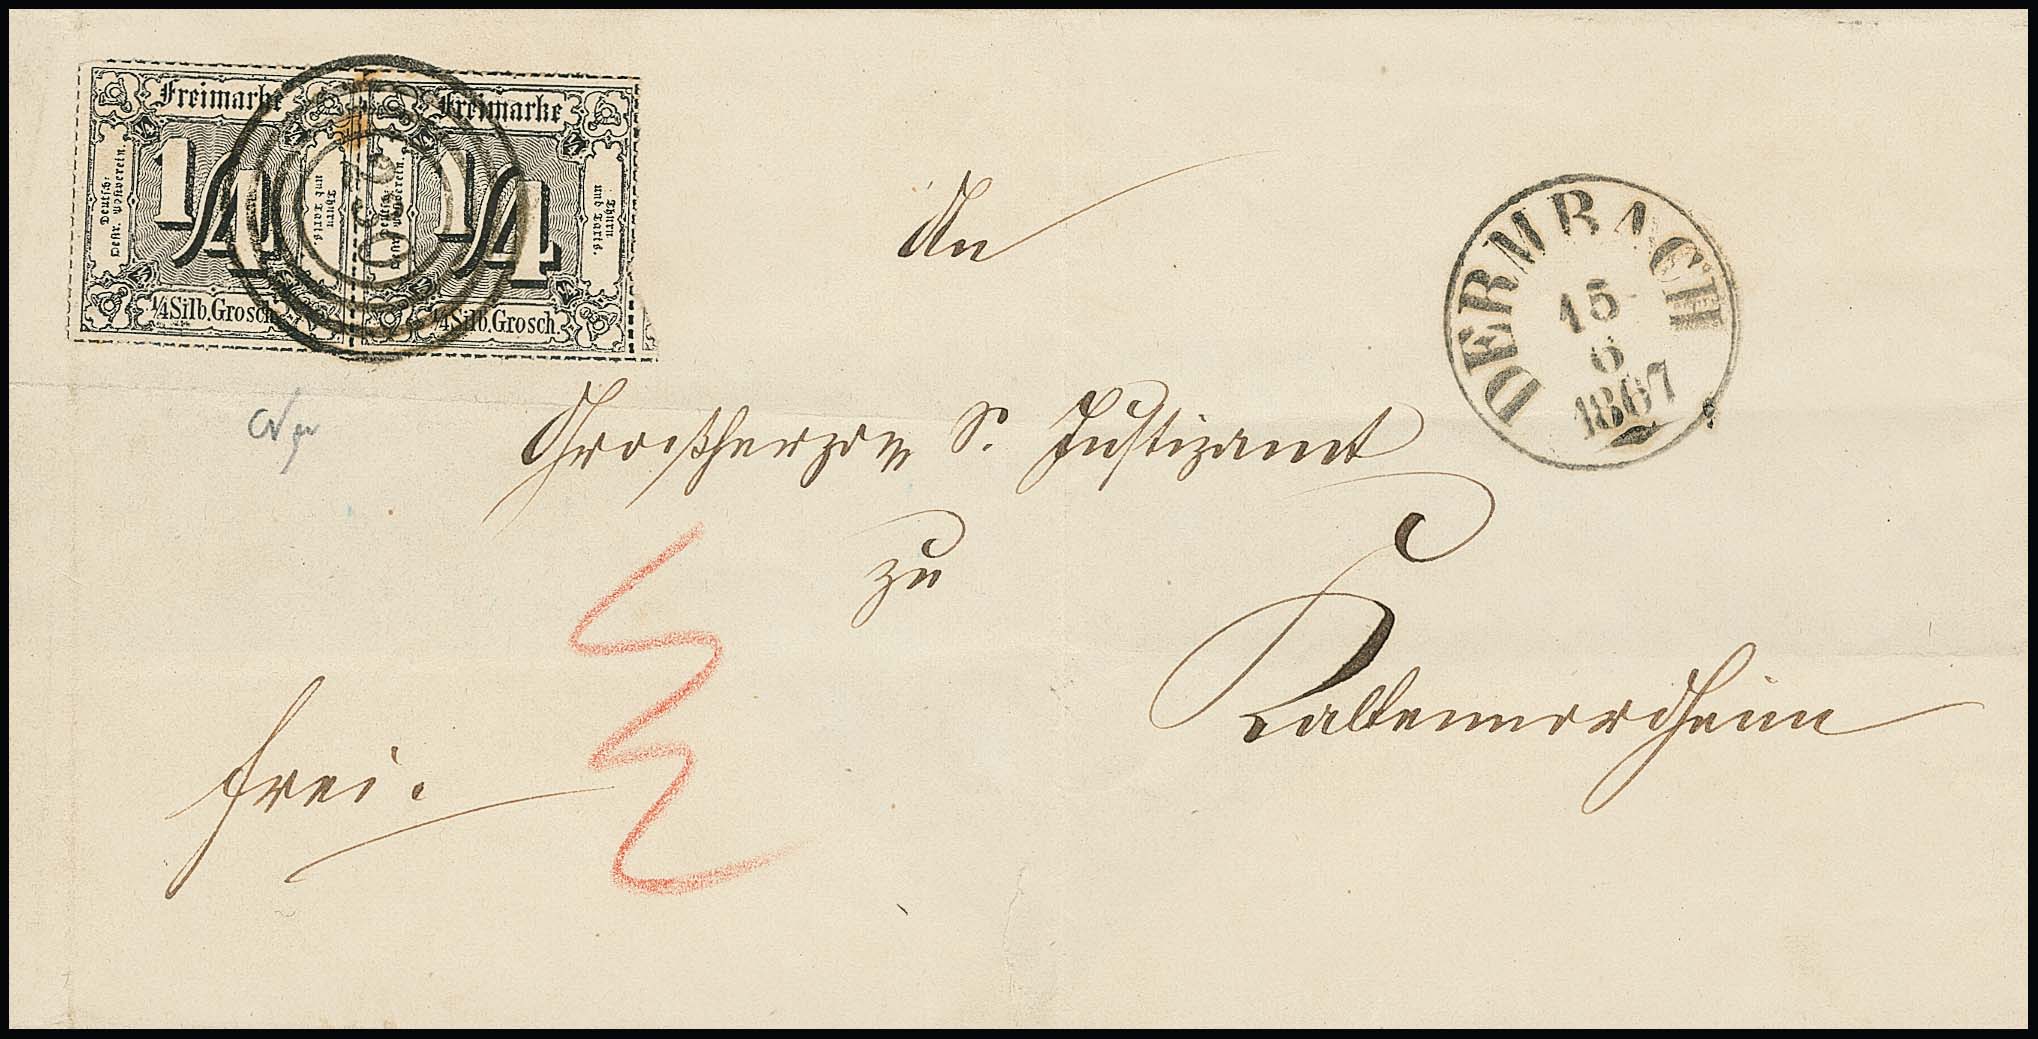 Freimarke Freimarke
Deutsch-
Oestr. Postverein.
1/4
Thurn
und Taxis.
Deutsch-
Oestr. Postverein.
1/4
Thurn
und Taxis.
¼ Silb. Grosch. ¼ Silb. Grosch.
230
DERMBACH
15
6
1867
An
Großherzog S. Justizamt
zu
Kaltennordheim
frei.